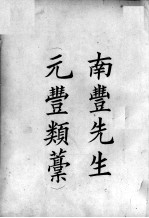 南豐先生
元豐類藁